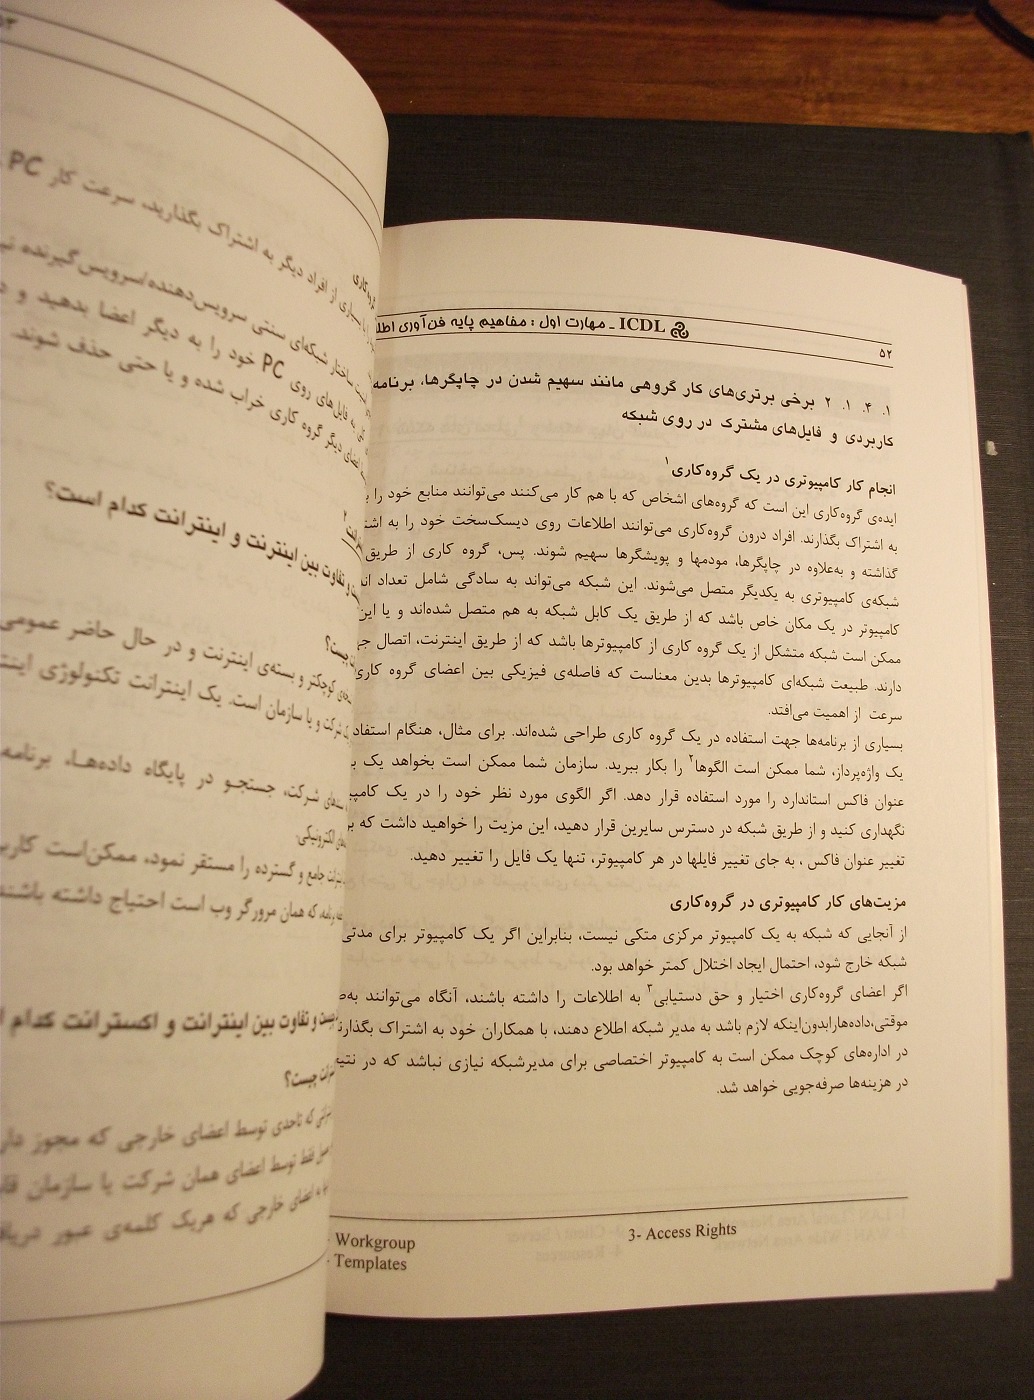 ۵۲
ICDL ـ مهارت اول : مفاهیم پایه فن‌آوری
۱. ۴. ۱. ۲ برخی برتری‌های کار گروهی مانند سهیم شدن در چاپگرها، برنامه
کاربردی و فایل‌های مشترک در روی شبکه
انجام کار کامپیوتری در یک گروه‌کاری۱
ایده‌ی گروه‌کاری این است که گروه‌های اشخاص که با هم کار می‌کنند می‌توانند منابع خود را
به اشتراک بگذارند. افراد درون گروه‌کاری می‌توانند اطلاعات روی دیسک‌سخت خود را به
گذاشته و به‌علاوه در چاپگرها، مودمها و پویشگرها سهیم شوند. پس، گروه کاری از طریق
شبکه‌ی کامپیوتری به یکدیگر متصل می‌شوند. این شبکه می‌تواند به سادگی شامل تعداد
کامپیوتر در یک مکان خاص باشد که از طریق یک کابل شبکه به هم متصل شده‌اند و یا این
ممکن است شبکه متشکل از یک گروه کاری از کامپیوترها باشد که از طریق اینترنت، اتصال
دارند. طبیعت شبکه‌ای کامپیوترها بدین معناست که فاصله‌ی فیزیکی بین اعضای گروه کاری
سرعت از اهمیت می‌افتد.
بسیاری از برنامه‌ها جهت استفاده در یک گروه کاری طراحی شده‌اند. برای مثال، هنگام استفاد
یک واژه‌پرداز، شما ممکن است الگوها۲ را بکار ببرید. سازمان شما ممکن است بخواهد یک
عنوان فاکس استاندارد را مورد استفاده قرار دهد. اگر الگوی مورد نظر خود را در یک
نگهداری کنید و از طریق شبکه در دسترس سایرین قرار دهید، این مزیت را خواهید داشت که
تغییر عنوان فاکس ، به جای تغییر فایلها در هر کامپیوتر، تنها یک فایل را تغییر دهید.
مزیت‌های کار کامپیوتری در گروه‌کاری
از آنجایی که شبکه به یک کامپیوتر مرکزی متکی نیست، بنابراین اگر یک کامپیوتر برای مدتی
شبکه خارج شود، احتمال ایجاد اختلال کمتر خواهد بود.
اگر اعضای گروه‌کاری اختیار و حق دستیابی۳ به اطلاعات را داشته باشند، آنگاه می‌توانند
موقتی،داده‌هارابدون‌اینکه لازم باشد به مدیر شبکه اطلاع دهند، با همکاران خود به اشتراک
در اداره‌های کوچک ممکن است به کامپیوتر اختصاصی برای مدیرشبکه نیازی نباشد که در
در هزینه‌ها صرفه‌جویی خواهد شد.
3- Access Rights
Workgroup
Templates
بسیاری از افراد دیگر به اشتراک بگذارید، سرعت کار PC
ساختار شبکه‌ای سنتی سرویس‌دهنده/سرویس‌گیرنده
به فایل‌های روی PC خود را به دیگر اعضا بدهید و
دیگر گروه کاری خراب شده و یا حتی حذف شوند.
و تفاوت بین اینترنت و اینترانت کدام است؟
چیست؟
کوچکتر و بسته‌ی اینترنت و در حال حاضر عمومی
شرکت و یا سازمان است. یک اینترانت تکنولوژی
شرکت، جستجو در پایگاه داده‌ها، برنامه
الکترونیکی.
جامع و گسترده را مستقر نمود، ممکن‌است
که همان مرورگر وب است احتیاج داشته باشند
و تفاوت بین اینترانت و اکسترانت کدام
چیست؟
که تاحدی توسط اعضای خارجی که مجوز
فقط توسط اعضای همان شرکت یا سازمان
به اعضای خارجی که هریک کلمه‌ی عبور